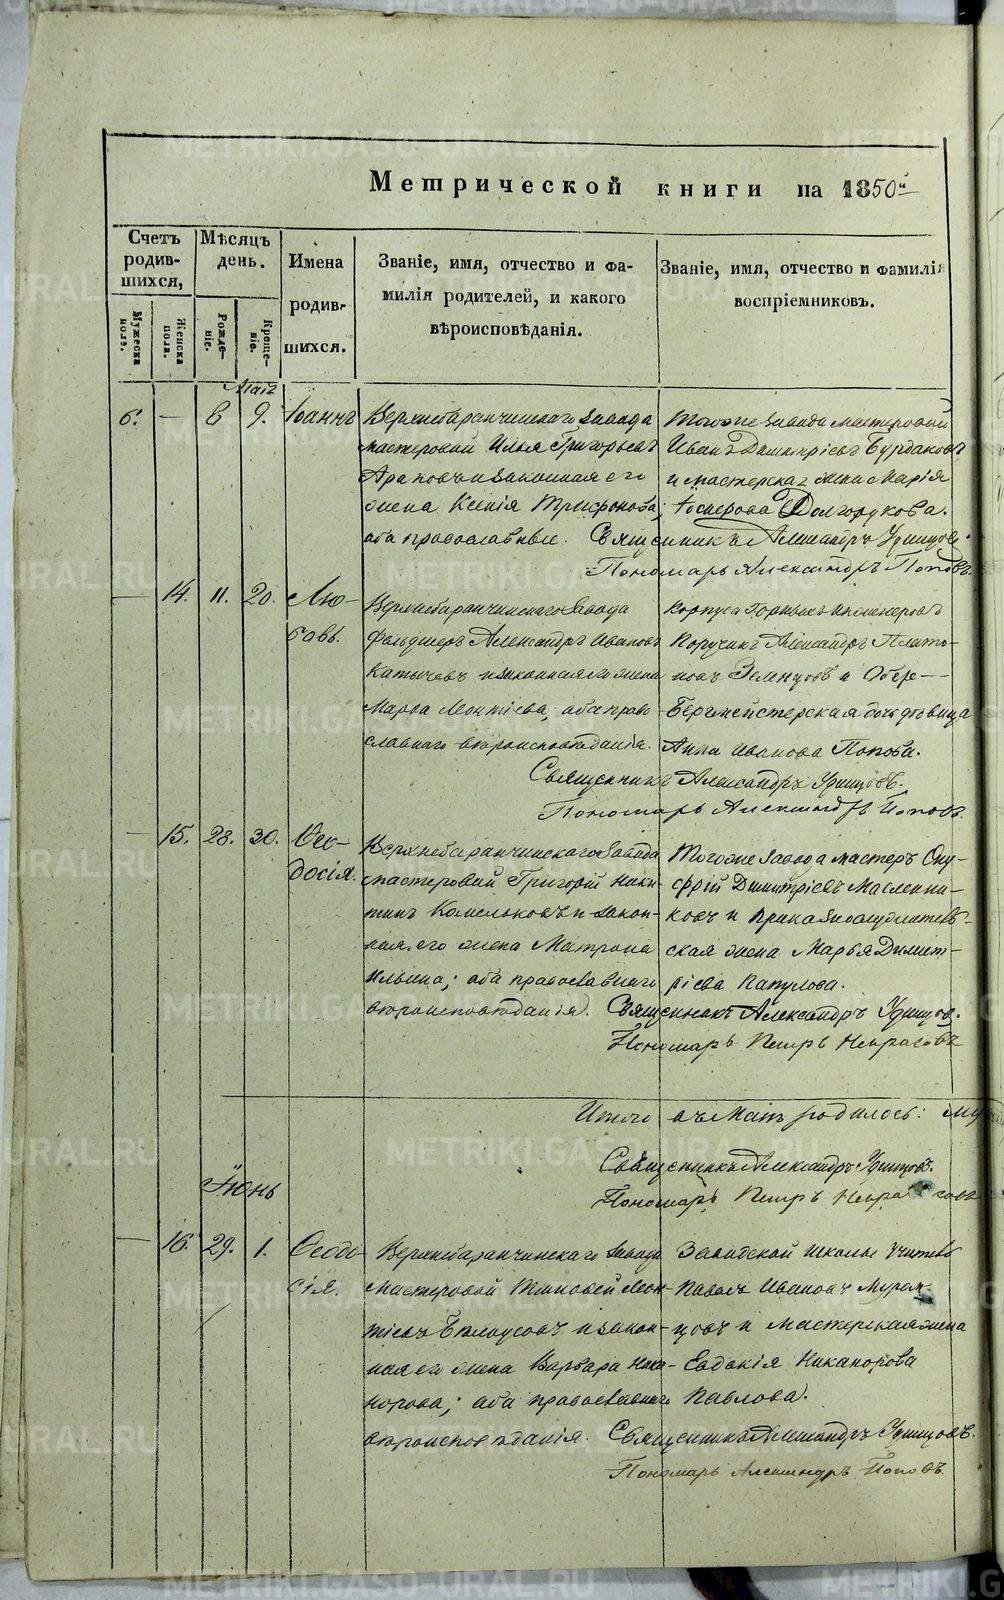 Метрической книги на 1850й
Счетъ родив- шихся,
Мѣсяцъ день.
Имена родив- шихся.
Званіе, имя, отчество и фа- милія родителей, и какого вѣроисповѣданія.
Званіе, имя, отчество и фамилія воспріемниковъ.
Мужеска пола.
Женска пола.
Рожде- ніе.
Креще- ніе.
6. — 8 9. Іоаннъ
Верхнебаранчинскаго завода
мастеровой Илья Григорьевъ
Араповъ и законная его
жена Ксенія Трифонова;
оба православные.
Тогоже завода мастеровой
Иванъ Димитріевъ Бурдаковъ
и мастерская жена Марія
Долгорукова.
Священникъ Александръ
Пономарь Александръ Поповъ.
— 14. 11. 20. Лю-
бовь.
Верхнебаранчинскаго завода
фельдшеръ Александръ Ивановъ
Катычевъ и законная его жена
Марѳа Леонтіева, оба право-
славнаго вѣроисповѣданія.
Корпуса Горныхъ инженеровъ
Поручикъ Александръ Плато-
новъ Земнцовъ и Обер-
Бергмейстерская дочь дѣвица
Анна Иванова Попова.
Священникъ Александръ
Пономарь Александръ Поповъ.
— 15. 28. 30. Ѳео-
досія.
Верхнебаранчинскаго завода
мастеровой Григорій Ники-
тинъ Комельковъ и закон-
ная его жена Матрона
Ильина; оба православнаго
вѣроисповѣданія.
Тогоже завода мастеръ Ону-
фрій Димитріевъ Масленни-
ковъ и приказнослужитель-
ская жена Марья Димит-
ріева Папулова.
Священникъ Александръ
Пономарь Петръ Некрасовъ
Итого въ Маѣ родилось:
Священникъ Александръ
Пономарь Петръ Некрасовъ
Іюнь
— 16. 29. 1. Ѳеодо-
сія.
Верхнебаранчинскаго завода
Мастеровой Тимоѳей Леон-
тіевъ Бѣлоусовъ и закон-
ная его жена Варвара Ника-
норова; оба православнаго
вѣроисповѣданія.
Заводской школы учитель
Павелъ Ивановъ
и мастерская жена
Евдокія Никанорова
Павлова.
Священникъ Александръ
Пономарь Александръ Поповъ
METRIKI.GASO-URAL.RU